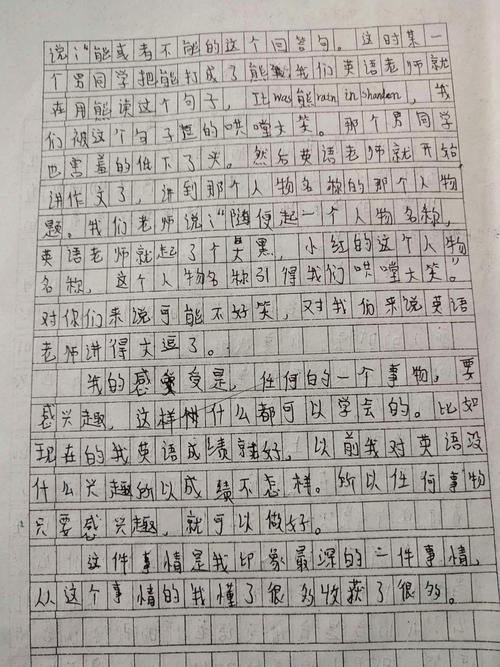 说:"能或者不能的这个回答句。这时某一
个男同学把能打成了熊,我们英语老师就
在用熊读这个句子,It was熊rain in shandon,我
们被这个句子逗的哄堂大笑。那个男同学
也害羞的低下了头。然后英语老师就开始
讲作文了,讲到那个人物名称的那个人物
题。我们老师说:"随便起一个人物名称,
英语老师就起了个吴黑,小红的这个人物
名称,这个人物名称引得我们哄堂大笑。"
对你们来说可能不好笑,对我们来说英语
老师讲得太逗了。
我的感受是,任何的一个事物,要
感兴趣,这样什么都可以学会的。比如
现在的我英语成绩就好,以前我对英语没
什么兴趣所以成绩不怎样。所以任何事物
只要感兴趣,就可以做好。
这件事情是我印象最深的一件事情,
从这个事情的我懂了很多收获了很多。